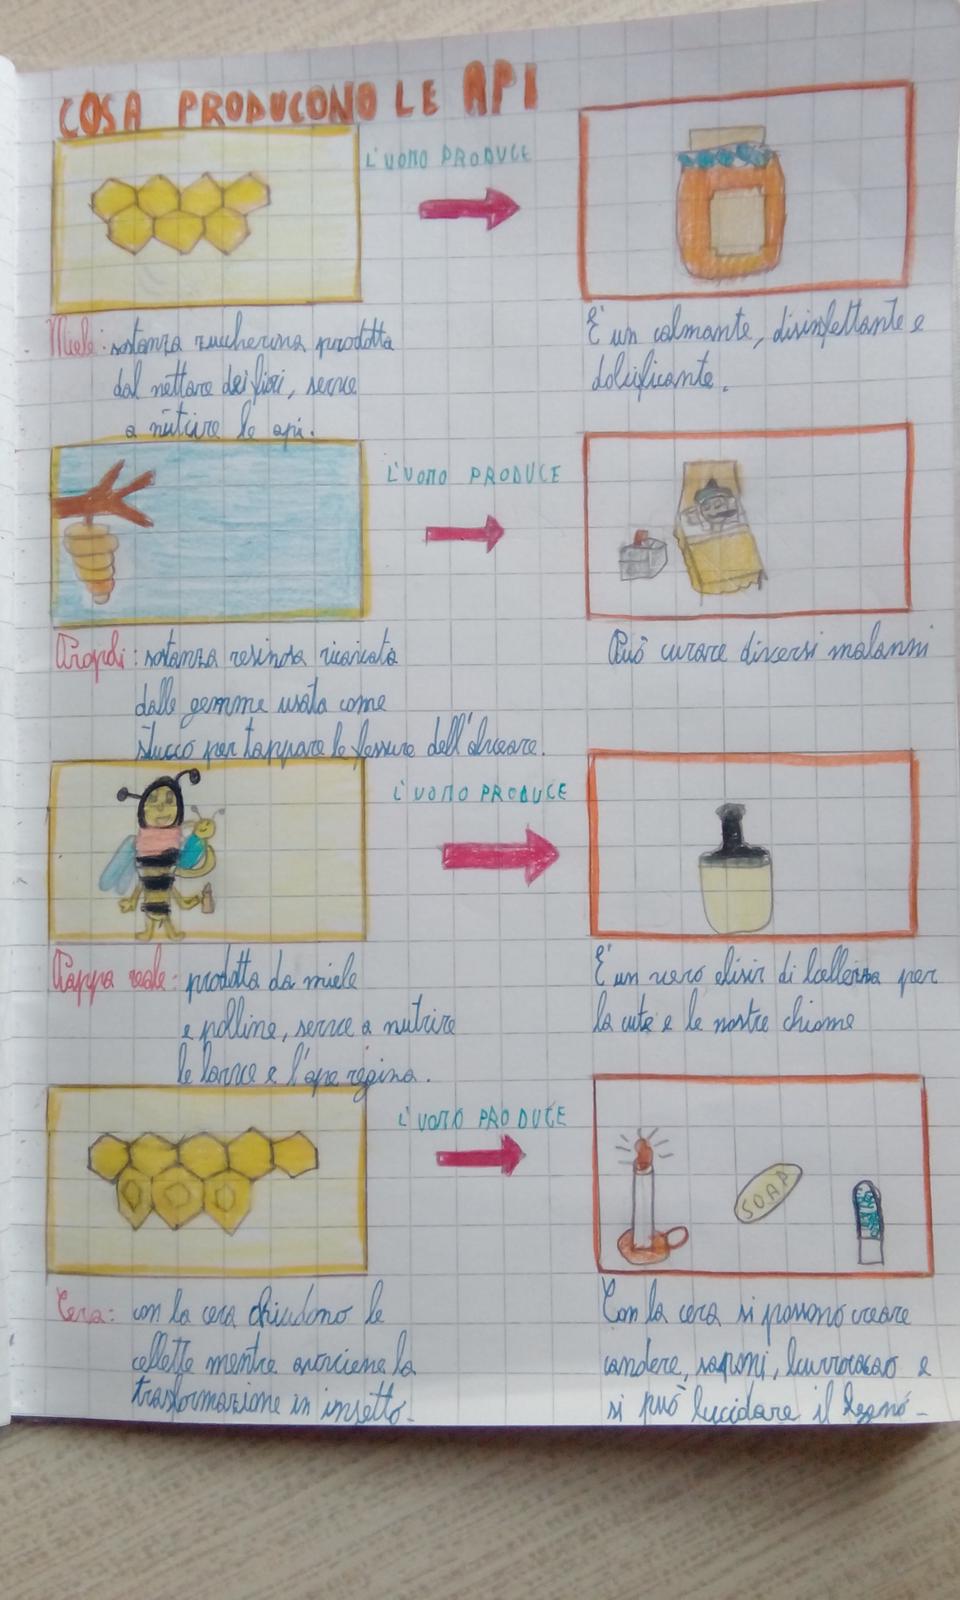 COSA PRODUCONO LE API
L'UOMO PRODUCE
Miele: sostanza zuccherina prodotta
dal nettare dei fiori, serve
a nutrire le api.
È un calmante, disinfettante e
dolcificante.
L'UOMO PRODUCE
Propoli: sostanza resinosa ricavata
dalle gemme usata come
stucco per tappare le fessure dell'alveare.
Può curare diversi malanni
L'UOMO PRODUCE
Pappa reale: prodotta da miele
e polline, serve a nutrire
le larve e l'ape regina.
È un vero elisir di bellezza per
la cute e le nostre chiome
L'UOMO PRODUCE
SOAP
Cera: con la cera chiudono le
cellette mentre avviene la
trasformazione in insetto.
Con la cera si possono creare
candere, saponi, burrocacao e
si può lucidare il legno.